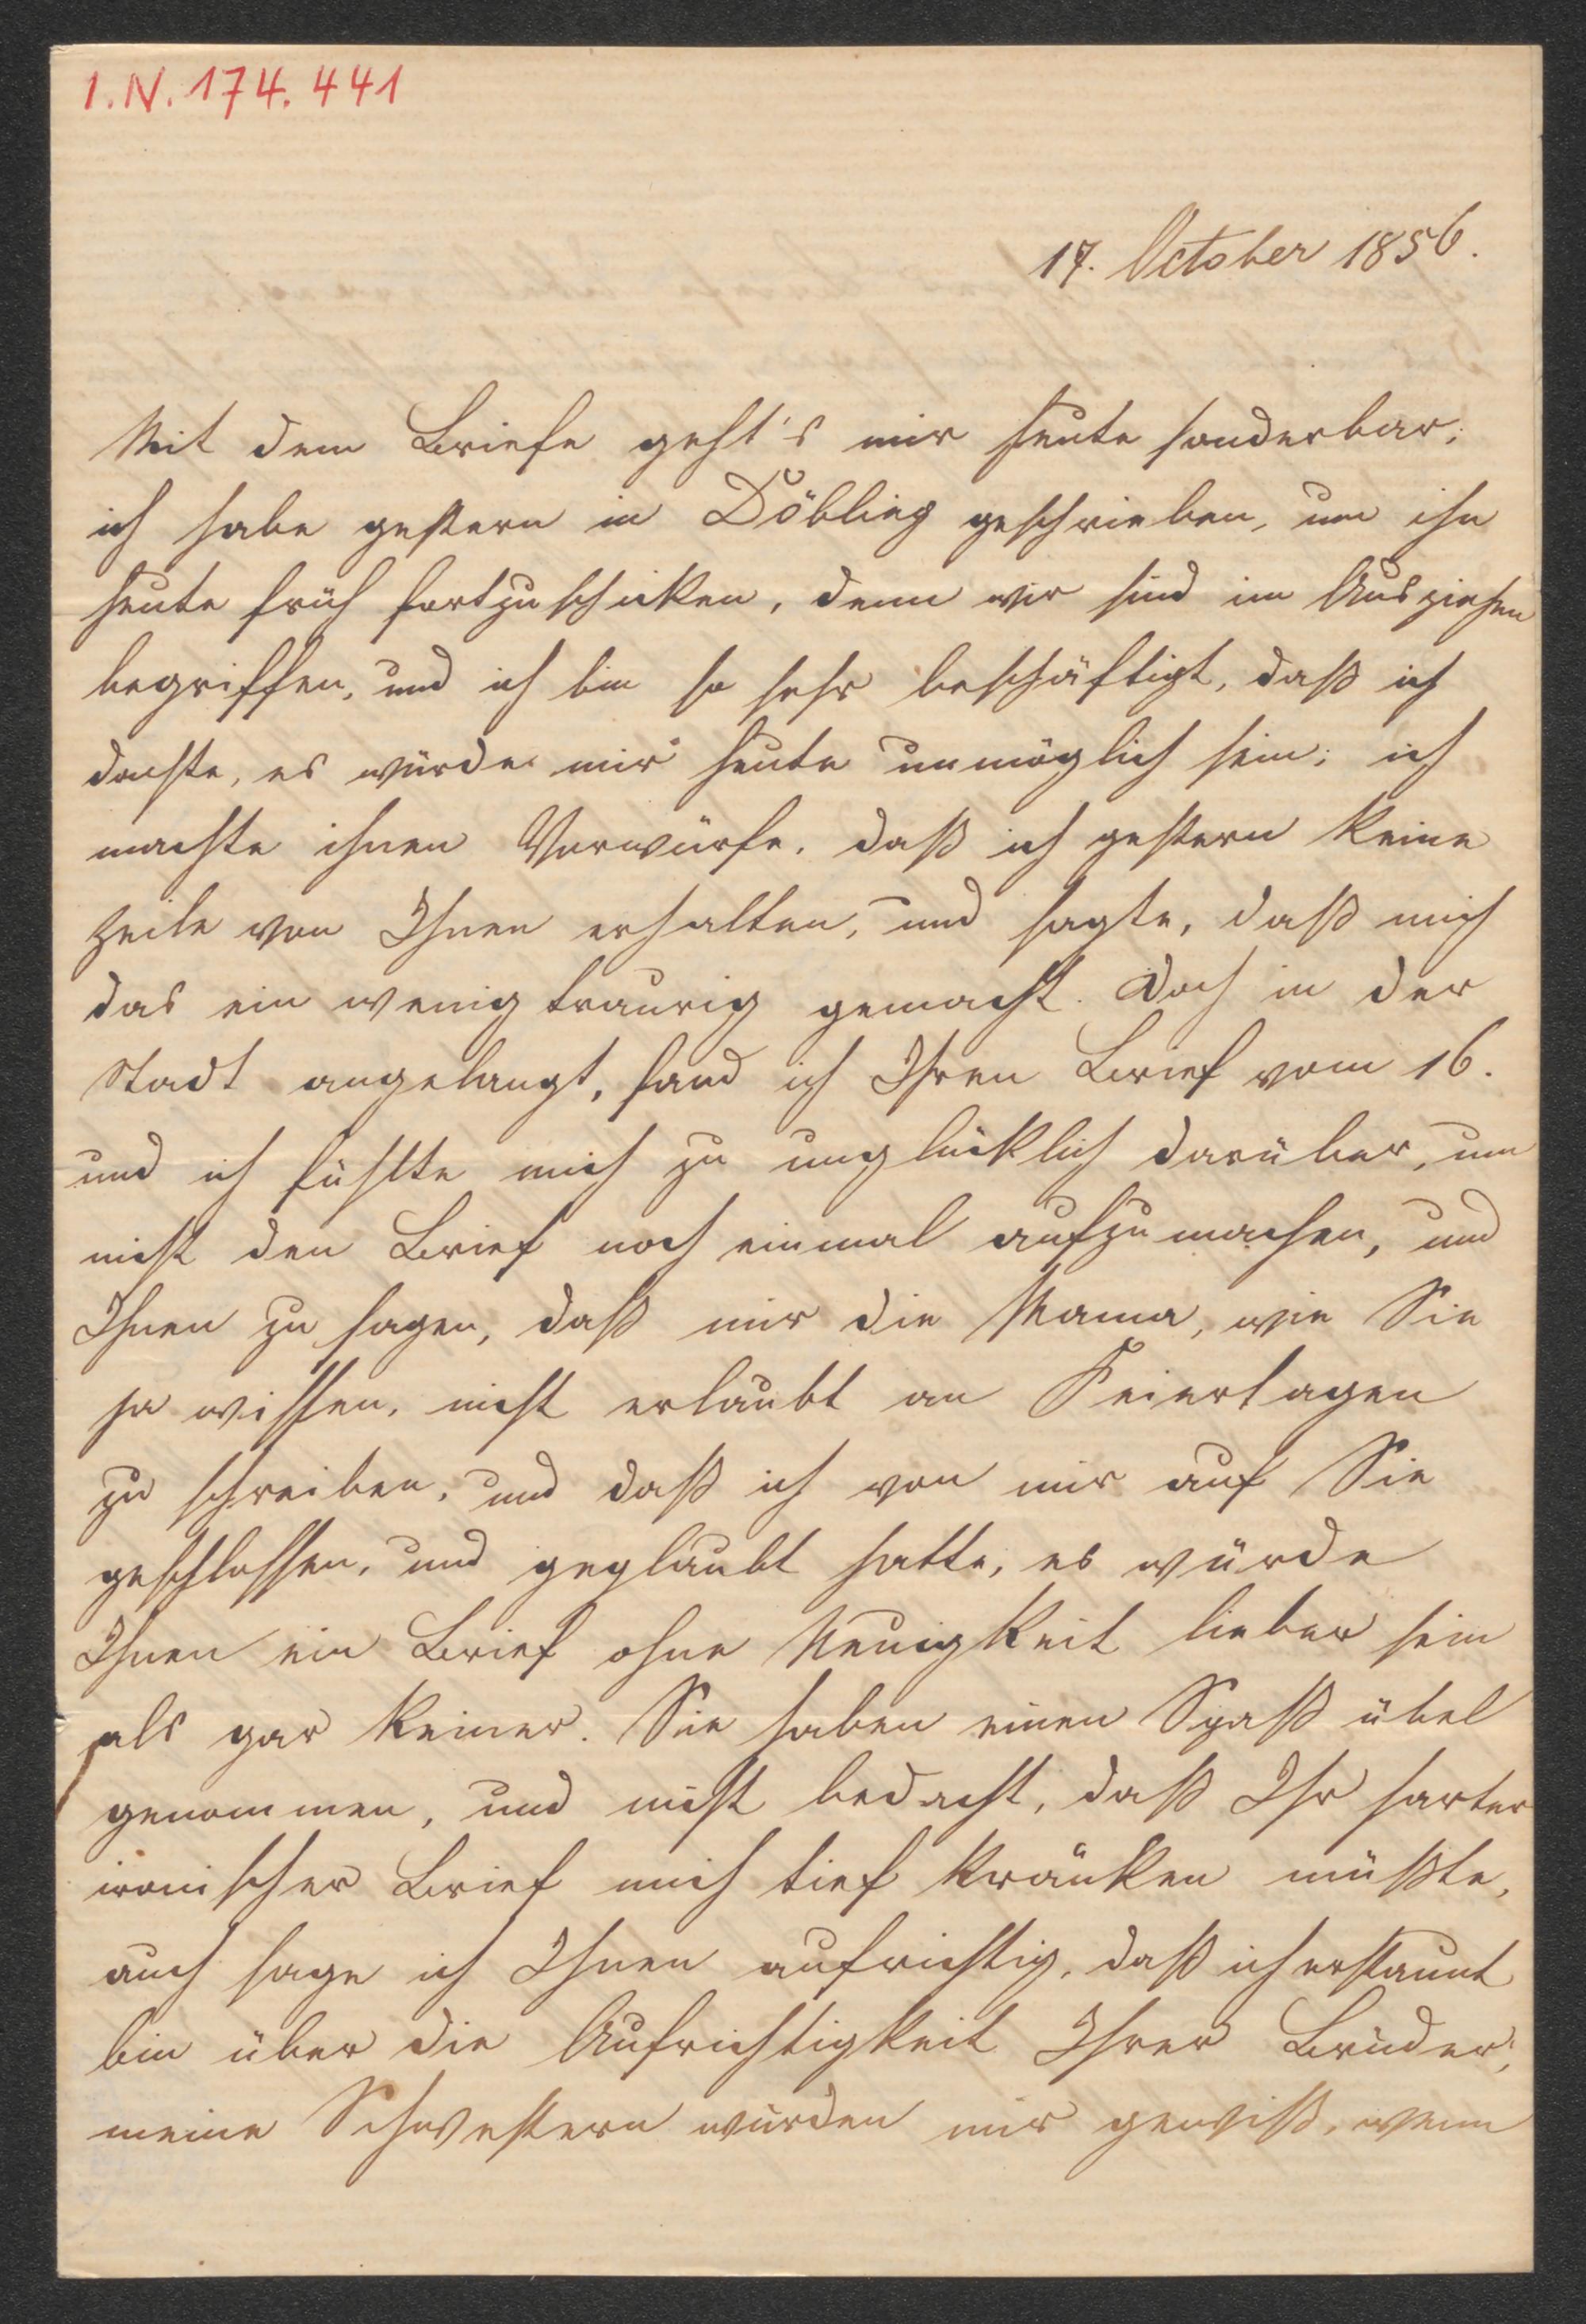 I.N. 174.441
17. October 1856.
Mit dem Briefe geht's mir heute sonderbar;
ich habe gestern in Döbling geschrieben, um ihn
heute früh fortzuschicken, denn wir sind im Ausziehen
begriffen, und ich bin so sehr beschäftigt, daß ich
dachte, es würde mir heute unmöglich sein; ich
machte ihnen Vorwürfe, daß ich gestern keine
Zeile von Ihnen erhalten, und sagte, daß mich
das ein wenig traurig gemacht. Doch in der
Stadt angelangt, fand ich Ihren Brief vom 16.
und ich fühlte mich zu unglücklich darüber, um
nicht den Brief noch einmal aufzumachen, und
Ihnen zu sagen, daß mir die Mama, wie Sie
ja wissen, nicht erlaubt an Feiertagen
zu schreiben, und daß ich von mir auf Sie
geschlossen, und geglaubt hatte, es würde
Ihnen ein Brief ohne Neuigkeit lieber sein
als gar keiner. Sie haben einen Spaß übel
genommen, und nicht bedacht, daß Ihr harter
ironischer Brief mich tief kränken müßte,
auch sage ich Ihnen aufrichtig, daß ich erstaunt
bin über die Aufrichtigkeit Ihrer Brüder;
meine Schwestern würden mir gewiß, wenn